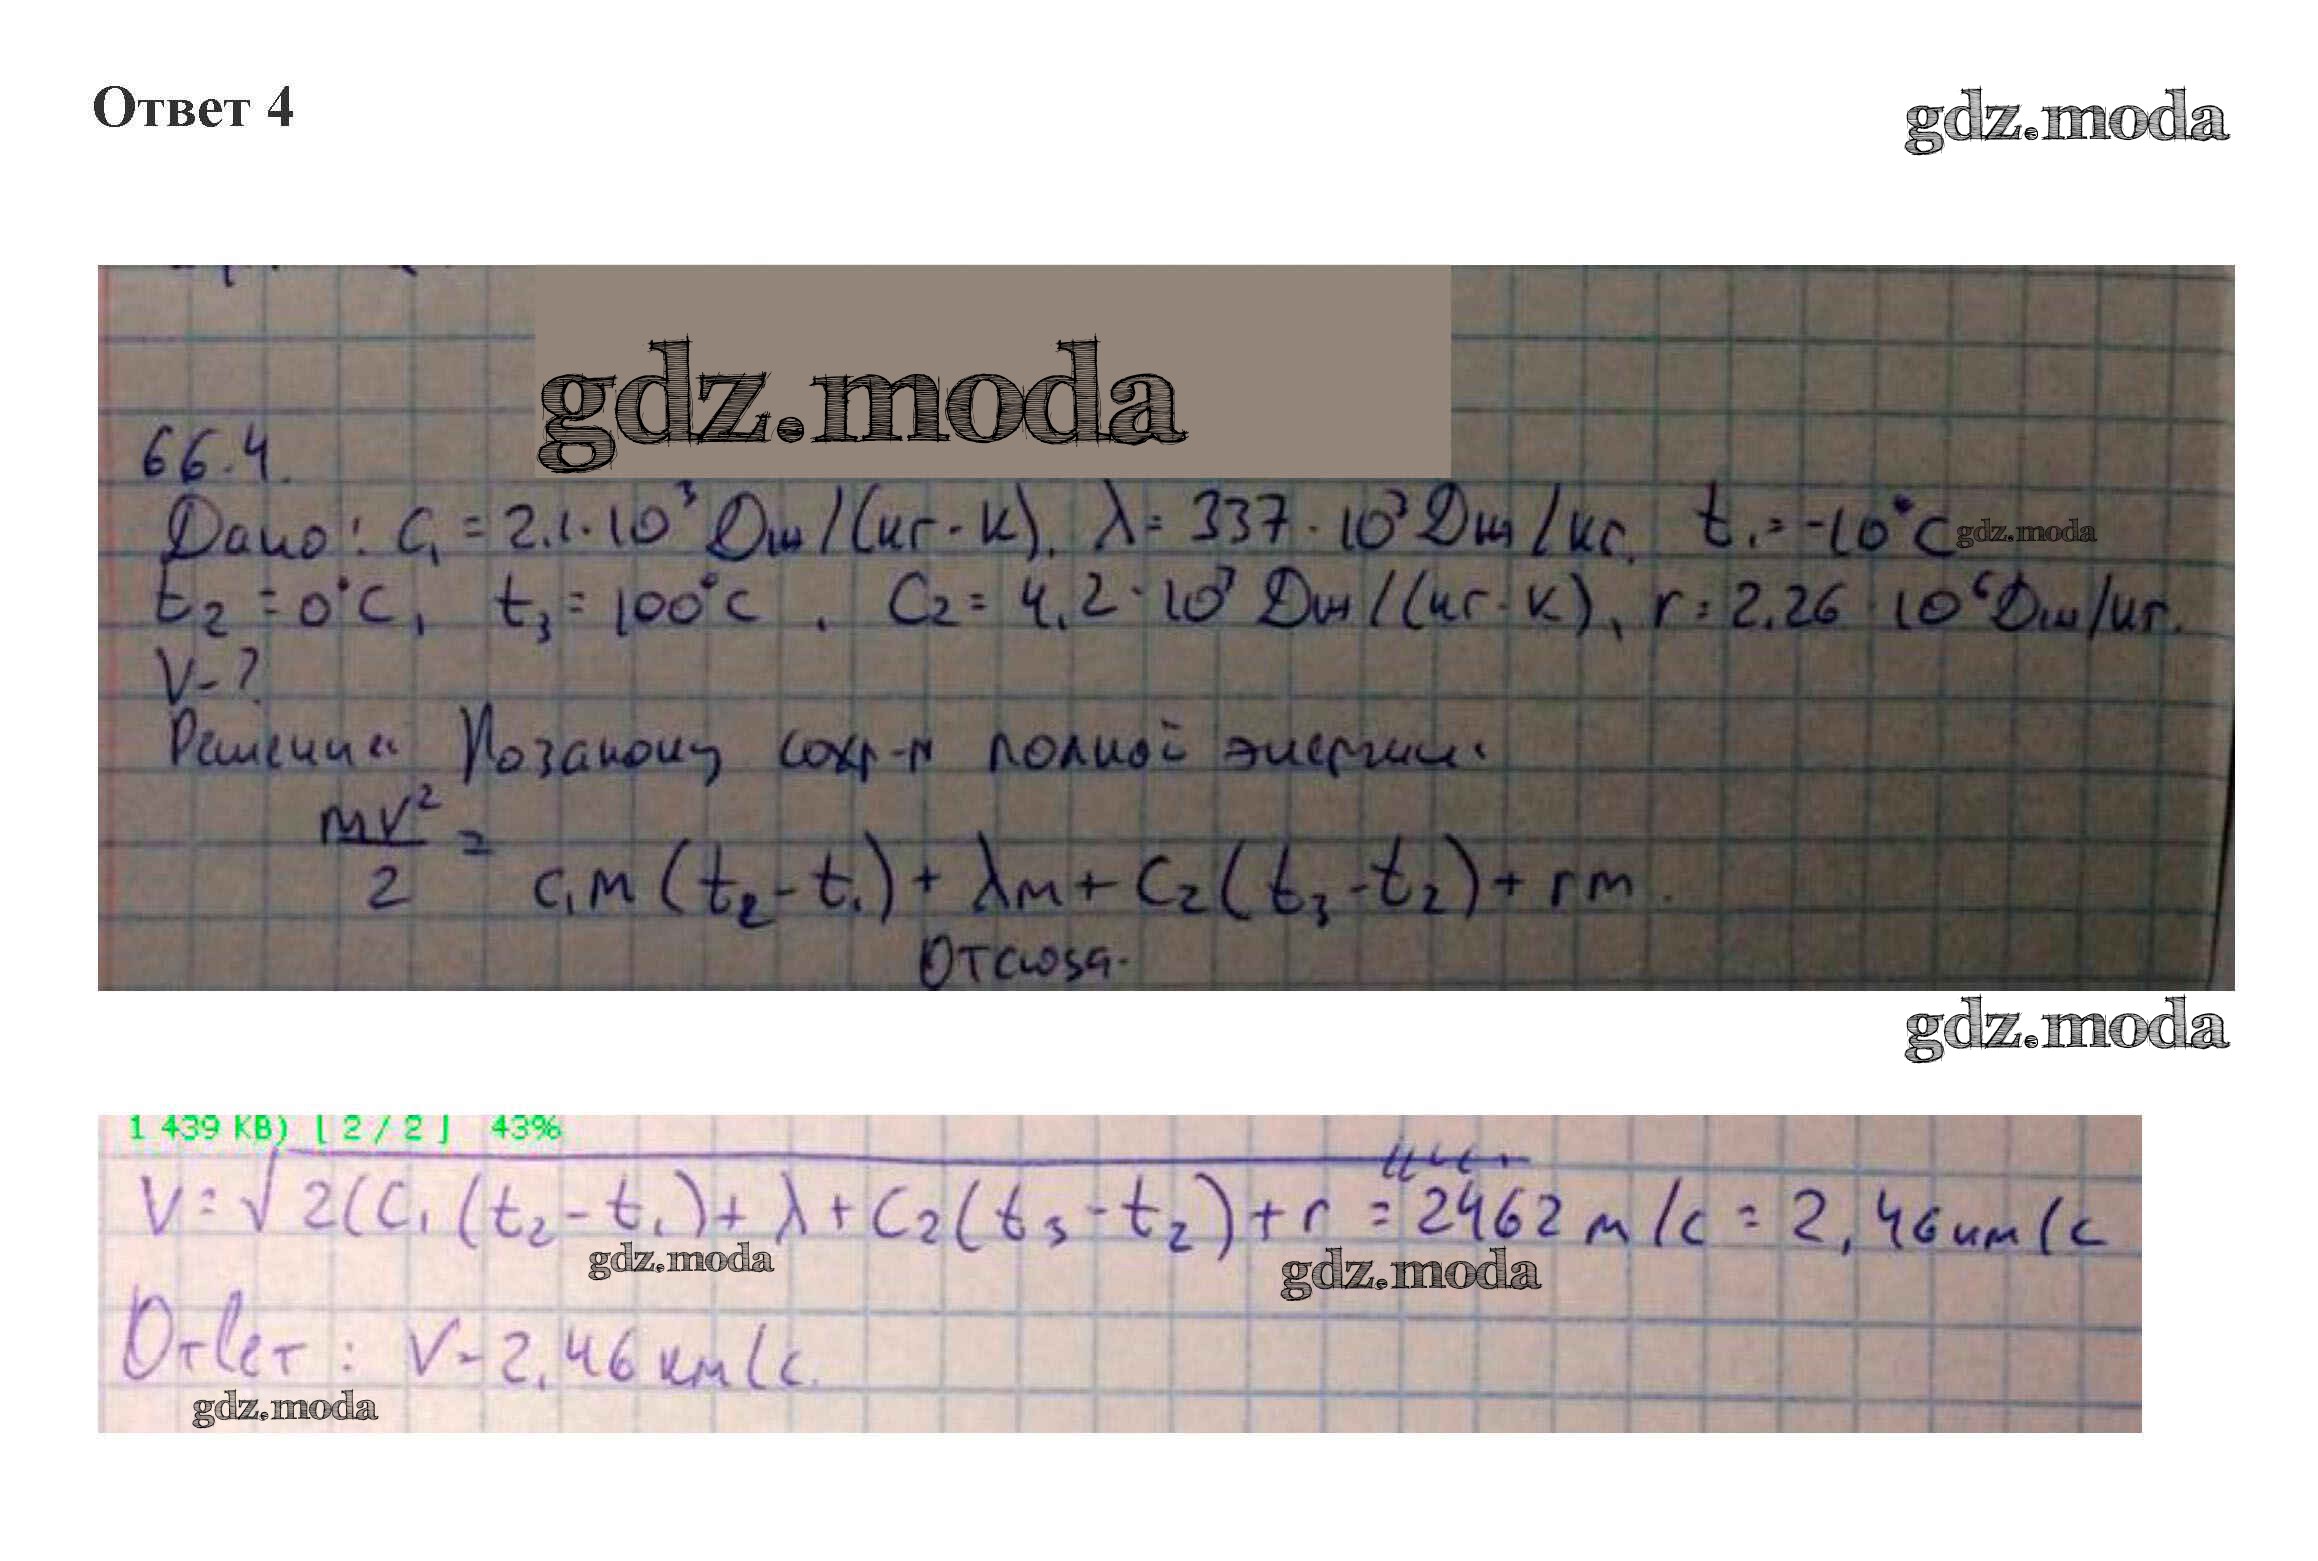 Ответ 4
gdz.moda
gdz.moda
66.4.
Дано: C₁ = 2.1·10³ Дж/(кг·К), λ = 337·10³ Дж/кг. t₁ = -10°C gdz.moda
t₂ = 0°C, t₃ = 100°C, C₂ = 4,2·10³ Дж/(кг·К), r = 2.26·10⁶ Дж/кг.
V-?
Решение: По закону сохр-я полной энергии:
mv²/2 = c₁m(t₂-t₁) + λm + C₂(t₃-t₂) + rm.
Отсюда.
gdz.moda
1 439 KB) [ 2 / 2 ] 43%
V = √2(C₁(t₂-t₁) + λ + C₂(t₃-t₂) + r = 2462 м/с = 2,46 км/с
gdz.moda gdz.moda
Ответ: V-2,46 км/с.
gdz.moda